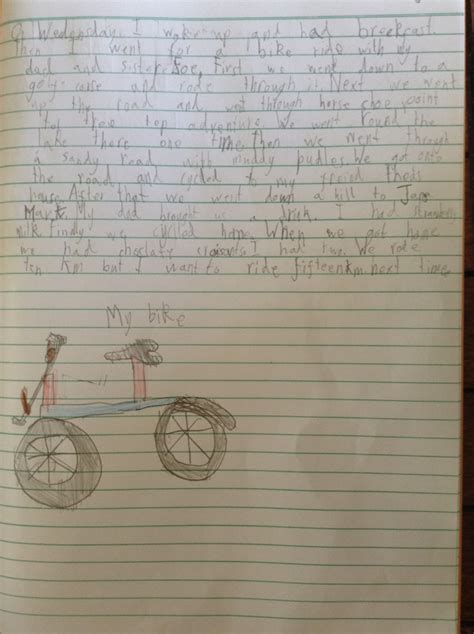 On Wednesday I woke up and had breekfast.
Then I went for a bike ride with my
dad and sister First we went down to a
and rode through it. Next we went
up the road and went through horse shoe point
to tree top We went round the
lake there one time Then we went through
a sandy road with muddy pudles. We got onto
the road and cycled to my freind
house. After that we went down a hill to
My dad brought us a drink. I had
milk. we home. When we got home
we had I had two. We rode
ten km but I want to ride fifteen km next time.
My bike